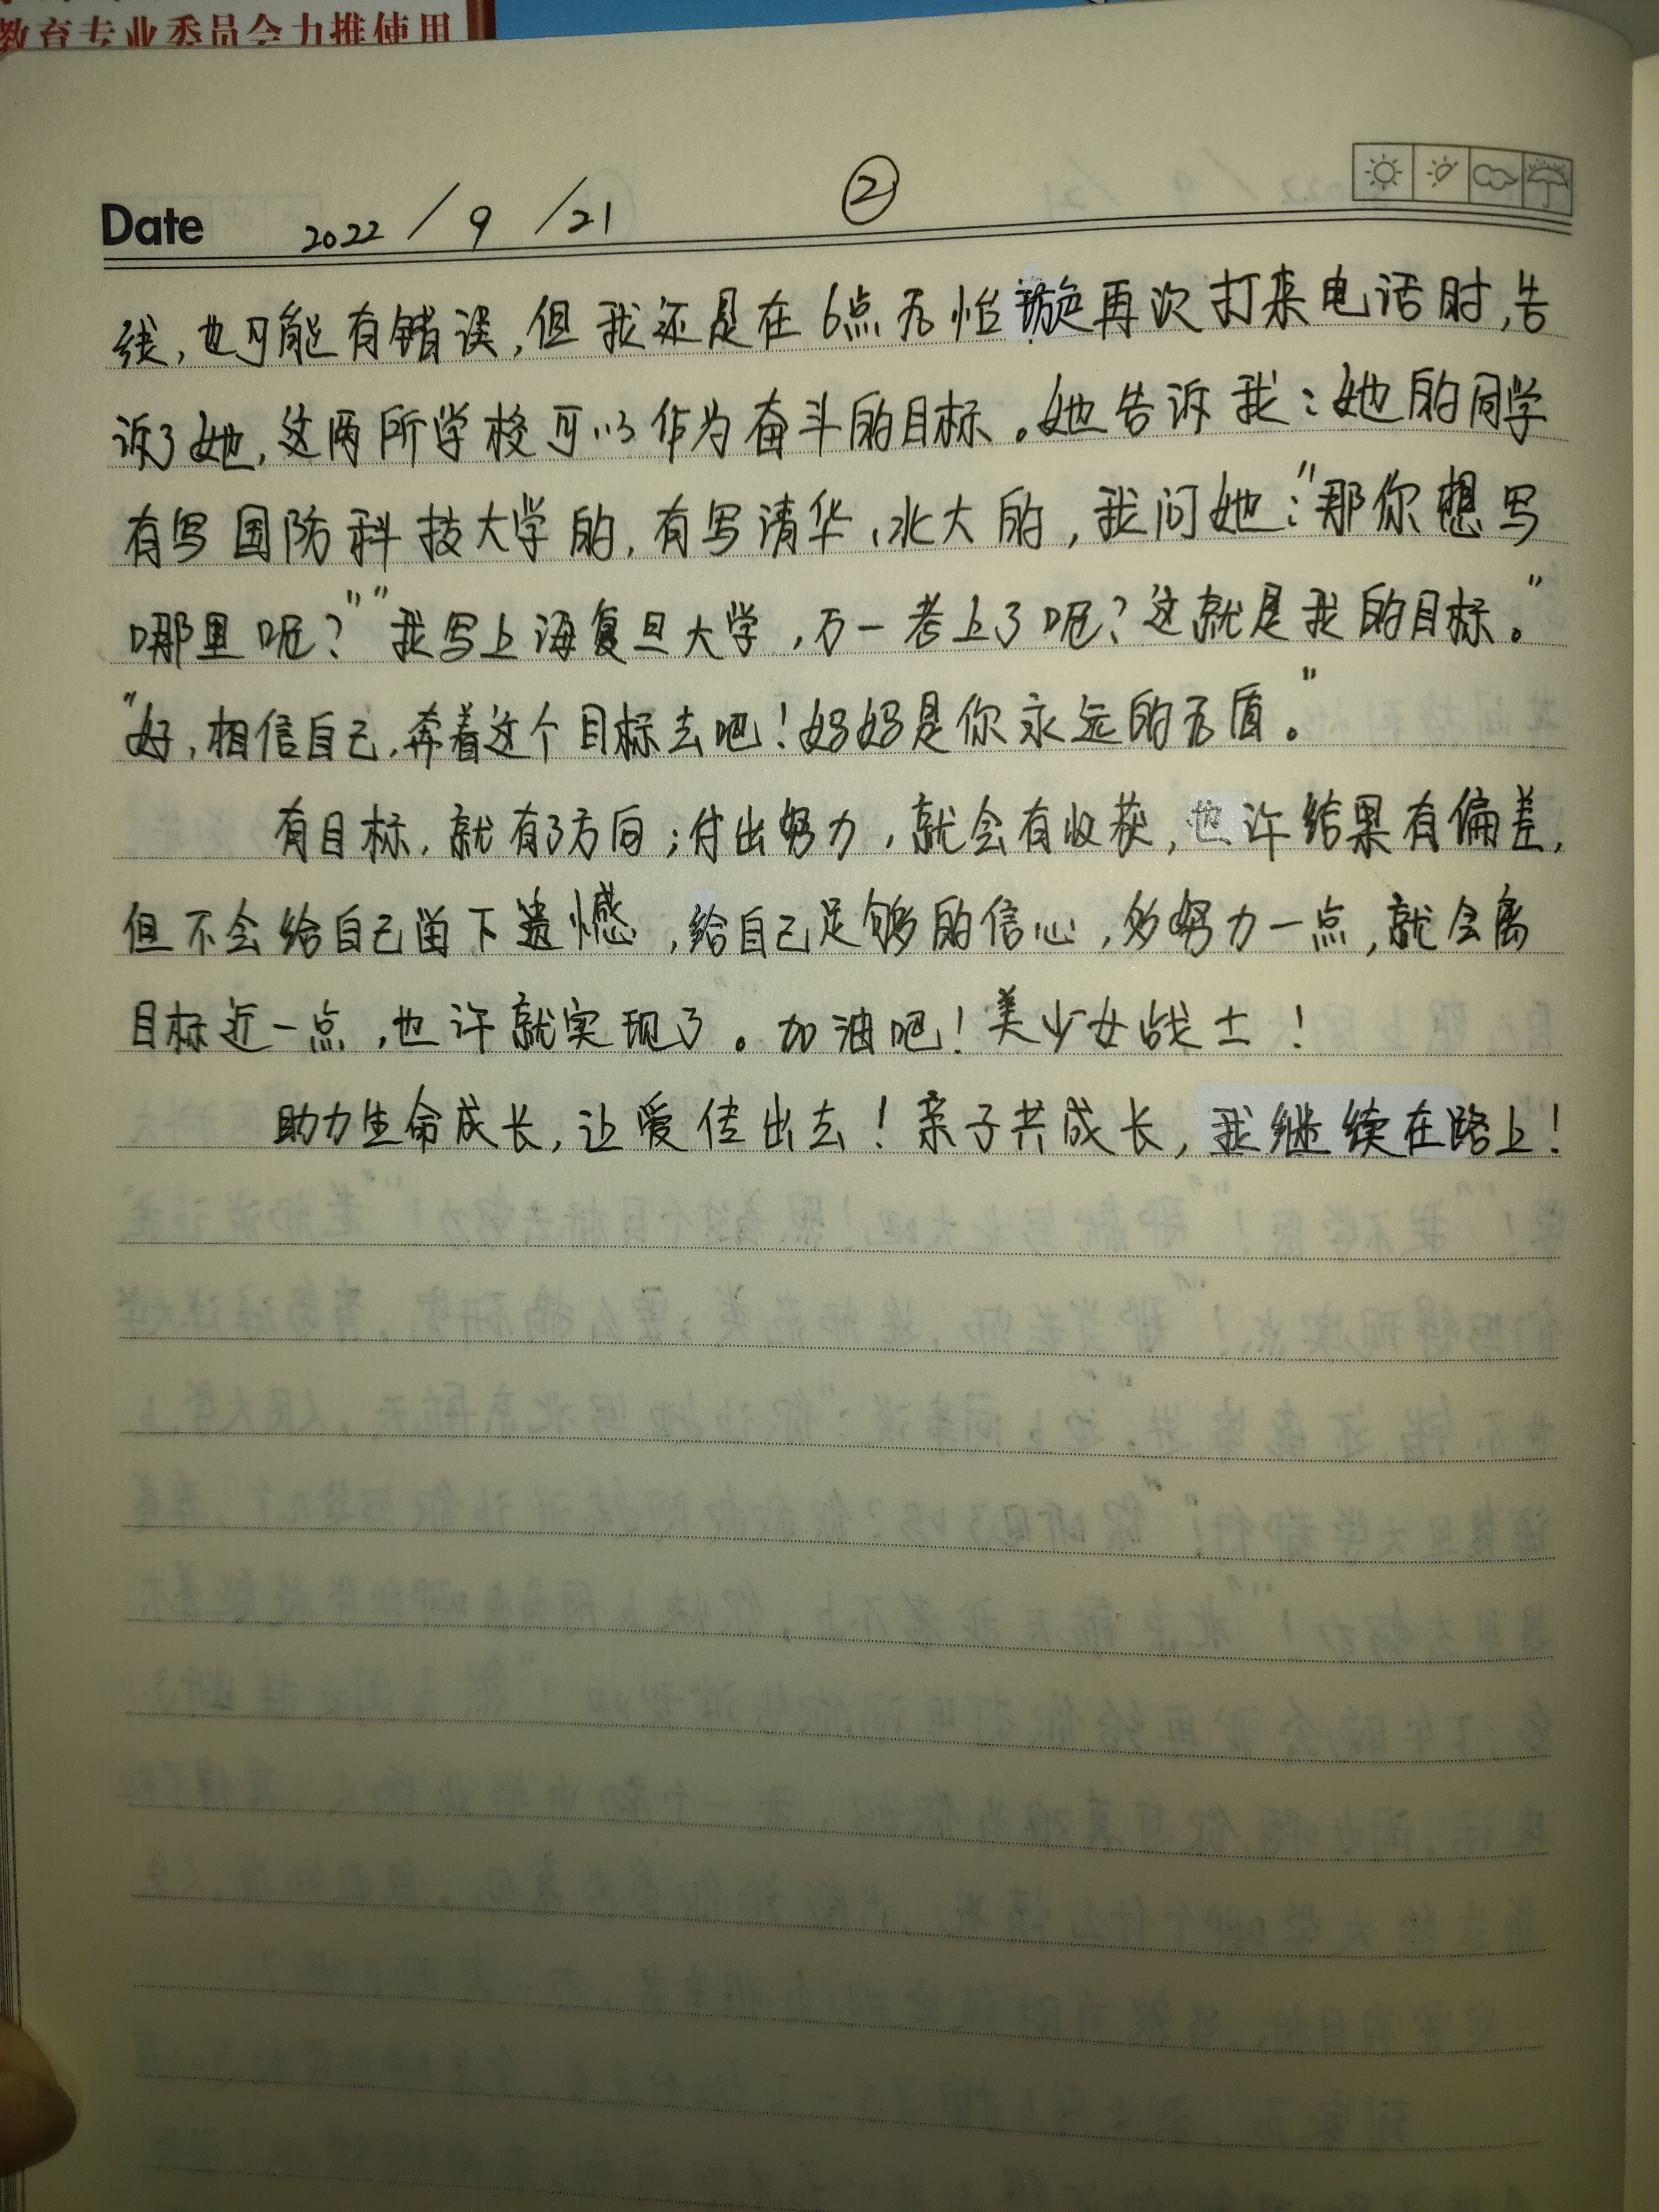 教育专业委员会力推使用
Date 2022/9/21 ②
线,也可能有错误,但我还是在6点左怡璇再次打来电话时,告
诉了她,这两所学校可以作为奋斗的目标。她告诉我:她的同学
有写国防科技大学的,有写清华、北大的,我问她:"那你想写
哪里呢?""我写上海复旦大学,万一考上了呢?这就是我的目标。"
"好,相信自己,奔着这个目标去吧!妈妈是你永远的后盾。"
有目标,就有了方向;付出努力,就会有收获,也许结果有偏差,
但不会给自己留下遗憾,给自己足够的信心,多努力一点,就会离
目标近一点,也许就实现了。加油吧!美少女战士!
助力生命成长,让爱传出去!亲子共成长,我继续在路上!